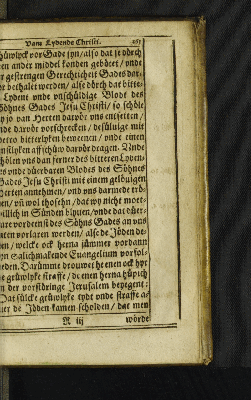 Vam Lydende Christi.
schüwlyck vor Gade syn / also dat je dörch
neen ander middel konden gebötet / unde
gestrengen Gerechticheit Gades
bethalet werden / alse dörch dat bitte
Lydent unde unschüldige Blodt des
Söhnes Gades Jesu Christi / so schöle
y jo van Herten darvör uns entsetten /
nde darvör vorschrecken / desülvige mit
Petro bitterlyken beweenen / unde einen
ernstlyken affschüw darvör dragen. Unde
schölen uns dan ferner des bitteren Lyden
unde dürbaren Blodes des Söhnes
Gades Jesu Christi mit einem gelövigen
Herten annehmen / und uns darmede trö-
sten / un wol thosehn / dat wy nicht moet-
willich in Sünden blyven / unde dat
Söhns Gades an uns
vorlaren werden / alse de Jöden de-
den / welcke ock herna jümmer vordann
syn salichmakende Euangelium
Darümme drouwet he enen ock hyr
grüwlyke straffe / de enen herna hüpich
in der vorstöringe Jerusalem bejegent:
Dat sülcke grüwlyke tydt unde straffe a-
ver de Jöden kamen scholden / dat men
N iij
wörde